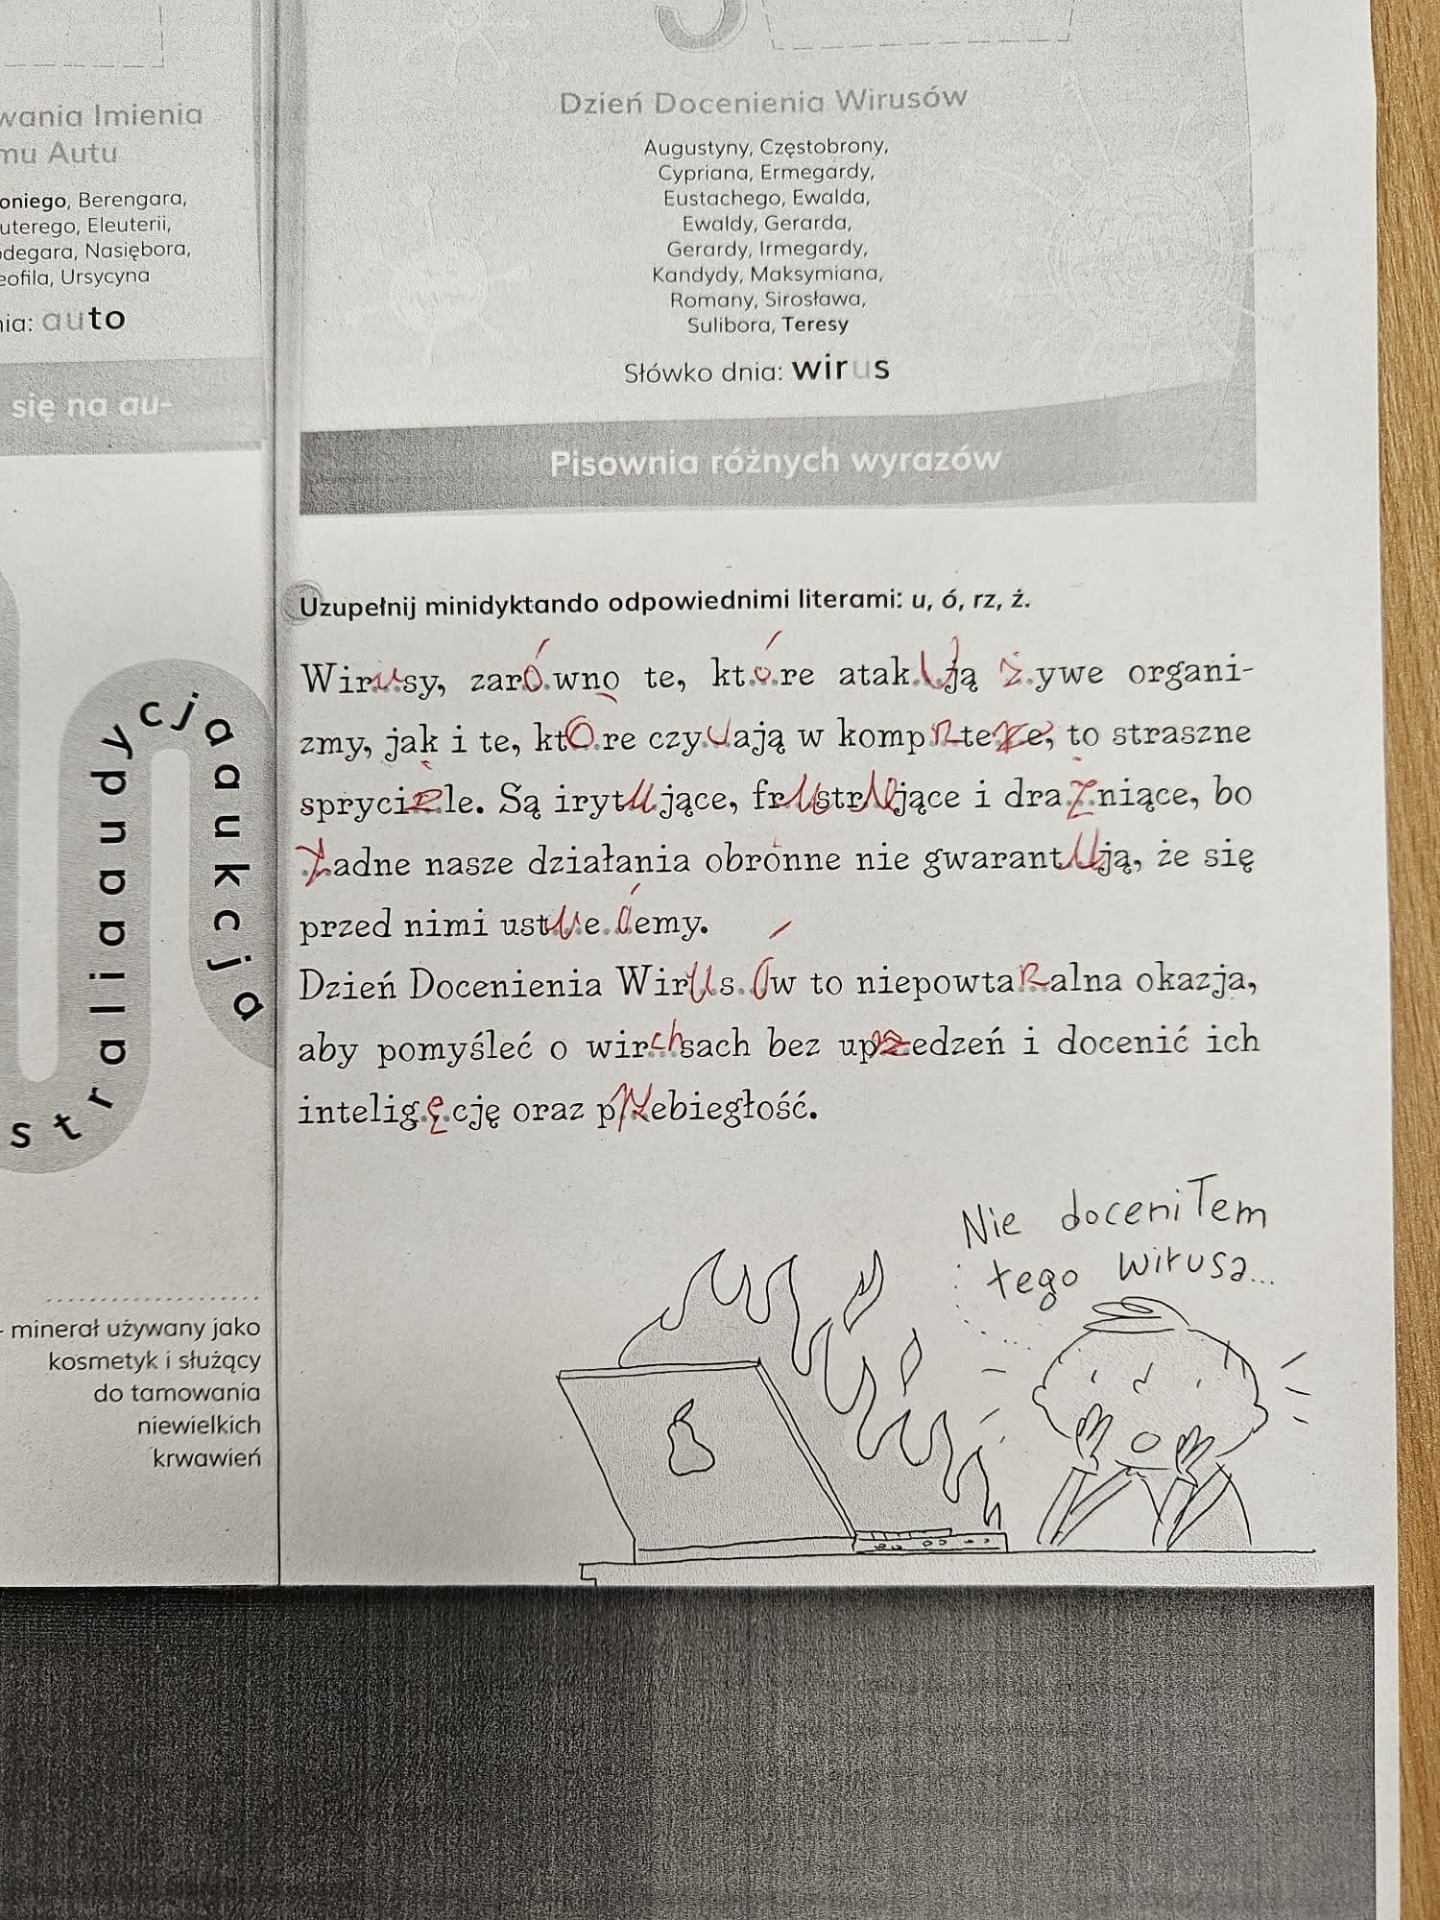 wania Imienia
mu Autu
oniego, Berengara,
uterego, Eleuterii,
odegara, Nasiębora,
eofila, Ursycyna
nia: auto
się na au-
straliaaudycjaaukcja
- minerał używany jako
kosmetyk i służący
do tamowania
niewielkich
krwawień
Dzień Docenienia Wirusów
Augustyny, Częstobrony,
Cypriana, Ermegardy,
Eustachego, Ewalda,
Ewaldy, Gerarda,
Gerardy, Irmegardy,
Kandydy, Maksymiana,
Romany, Sirosława,
Sulibora, Teresy
Słówko dnia: wirus
Pisownia różnych wyrazów
Uzupełnij minidyktando odpowiednimi literami: u, ó, rz, ż.
Wirusy, zarówno te, które atakują żywe organi-
zmy, jak i te, ktOre czyuają w to straszne
Są irytujące, frustrujące i drażniące, bo
żadne nasze działania obronne nie gwarantują, że się
przed nimi
Dzień Docenienia WirusÓw to niepowtaRalna okazja,
aby pomyśleć o wirchsach bez edzeń i docenić ich
inteligęcję oraz przebiegłość.
Nie doceniłem
tego wirusa...